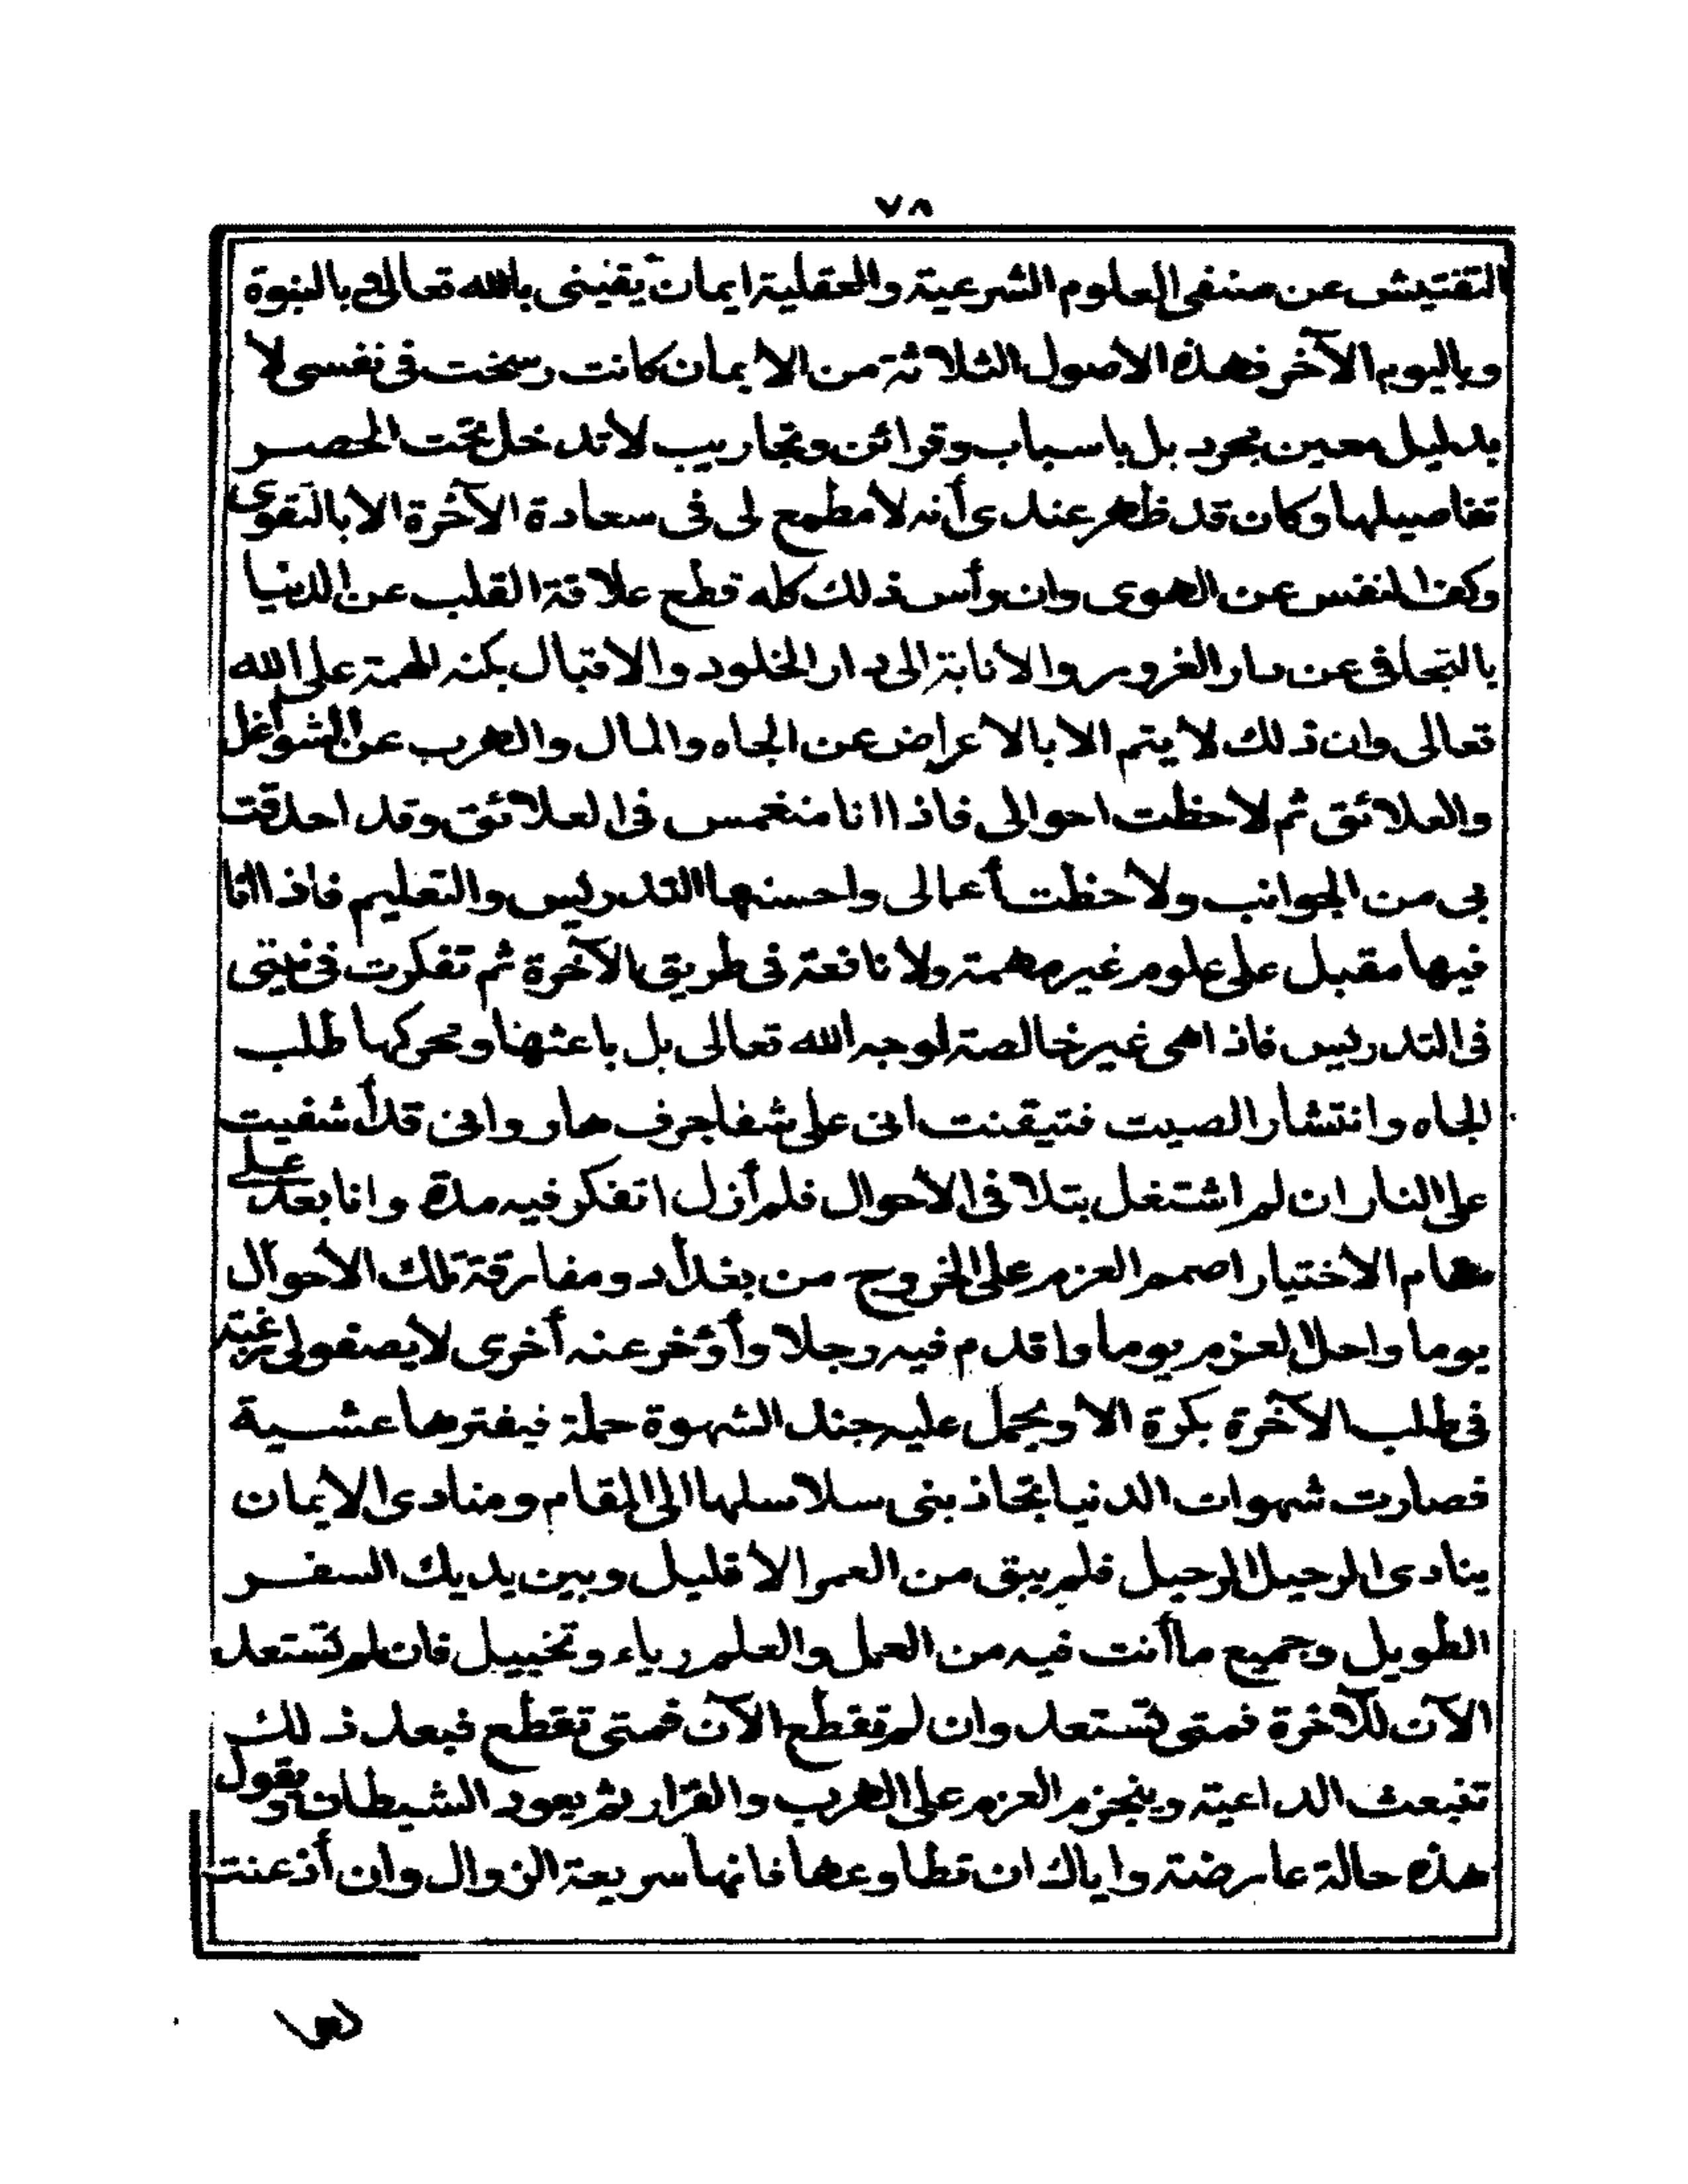 ٧٨
التفتيش عن صنفى العلوم الشرعية والعقلية ايمان يقينى بالله تعالى وبالنبوة
وباليوم الآخر فهذه الاصول الثلاثة من الايمان كانت رسخت فى نفسى لا
بدليل معين مجرد بل باسباب وقرائن وتجاريب لا تدخل تحت الحصر
تفاصيلها وكان قد ظهر عندى أنه لا مطمع لى فى سعادة الآخرة الا بالتقوى
وكف النفس عن الهوى وان رأس ذلك كله قطع علاقة القلب عن الدنيا
بالتجافى عن دار الغرور والانابة الى دار الخلود والاقبال بكنه الهمة على الله
تعالى وان ذلك لا يتم الا بالاعراض عن الجاه والمال والهرب عن الشواغل
والعلائق ثم لاحظت احوالى فاذا انا منغمس فى العلائق وقد احدقت
بى من الجوانب ولاحظت أعمالى واحسنها التدريس والتعليم فاذا انا
فيها مقبل على علوم غير مهمة ولا نافعة فى طريق الآخرة ثم تفكرت فى نيتى
فى التدريس فاذا هى غير خالصة لوجه الله تعالى بل باعثها ومحركها طلب
الجاه وانتشار الصيت فتيقنت انى على شفا جرف هار وانى قد أشفيت
على النار ان لم اشتغل بتلا فى الاحوال فلم أزل اتفكر فيه مدة وانا بعد على
مقام الاختيار اصمم العزم على الخروج من بغداد ومفارقة تلك الاحوال
يوما واحل العزم يوما واقدم فيه رجلا وأؤخر عنه أخرى لا يصفو لى رغبة
فى طلب الآخرة بكرة الا ويحمل عليه جند الشهوة حملة فيفترها عشية
فصارت شهوات الدنيا تجاذبنى سلاسلها الى المقام ومنادى الايمان
ينادى الرحيل الرحيل فلم يبق من العمر الا قليل وبين يديك السفر
الطويل وجميع ما أنت فيه من العمل والعلم رياء وتخييل فان لم تستعد
الآن للآخرة فمتى تستعد وان لم تقطع الآن فمتى تقطع فبعد ذلك
تنبعث الداعية وينجزم العزم على الهرب والفرار ثم يعود الشيطان ويقول
هذه حالة عارضة واياك ان تطاوعها فانها سريعة الزوال وان أذعنت